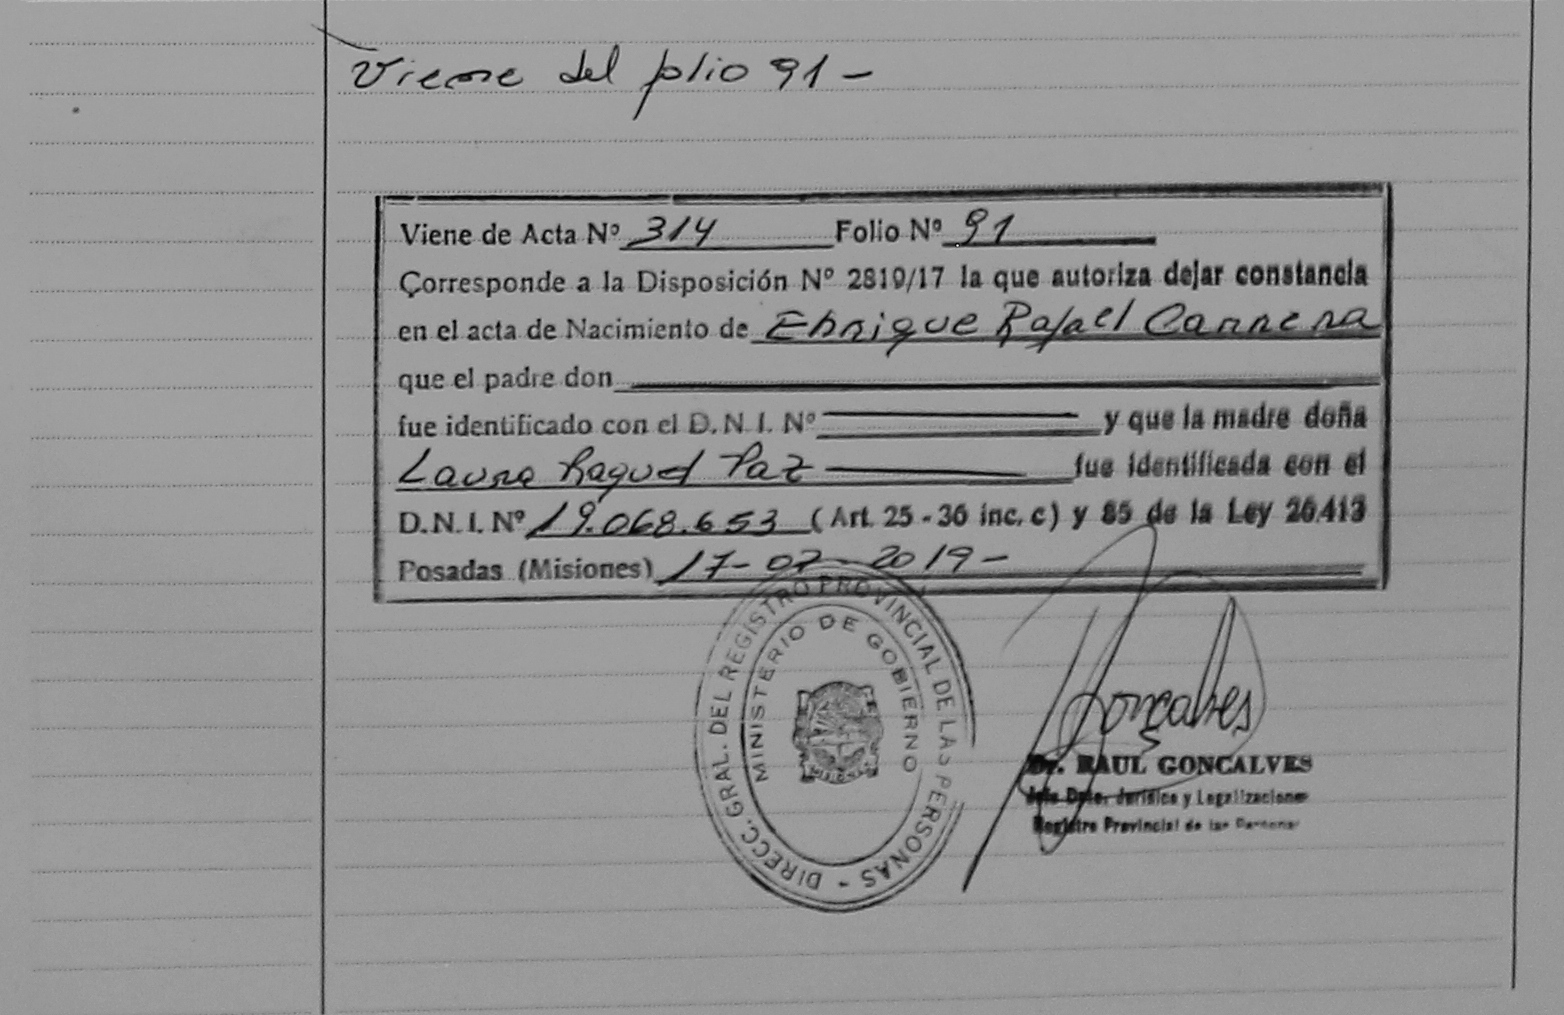 Viene del folio 91 -
Viene de Acta Nº 314 Folio Nº 91
Corresponde a la Disposición Nº 2819/17 la que autoriza dejar constancia
en el acta de Nacimiento de Enrique Rafael Carrera
que el padre don
fue identificado con el D. N. I. Nº y que la madre doña
Laura Raquel Paz fue identificada con el
D. N. I. Nº 19.068.653 ( Art. 25 - 36 inc. c ) y 85 de la Ley 26.413
Posadas (Misiones) 17-07-2019-
DIRECC. GRAL. DEL REGISTRO PROVINCIAL DE LAS PERSONAS -
MINISTERIO DE GOBIERNO
Gonçalves
Dr. RAUL GONCALVES
Jefe Dpto. Jurídico y Legalizaciones
Registro Provincial de las Personas